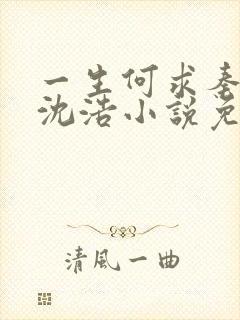 一生何求
沈浩小說免
清風一曲